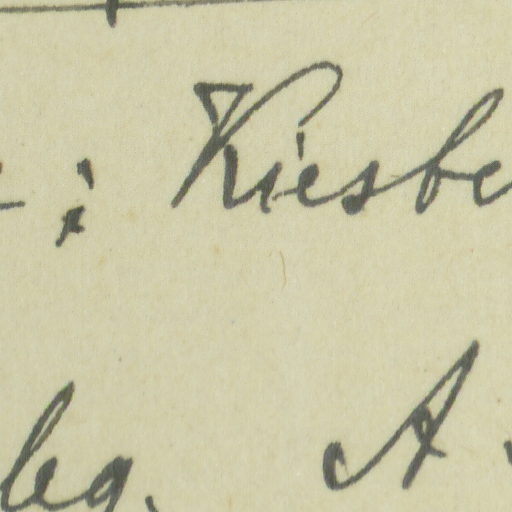 ; Kiesbe
leg. A.